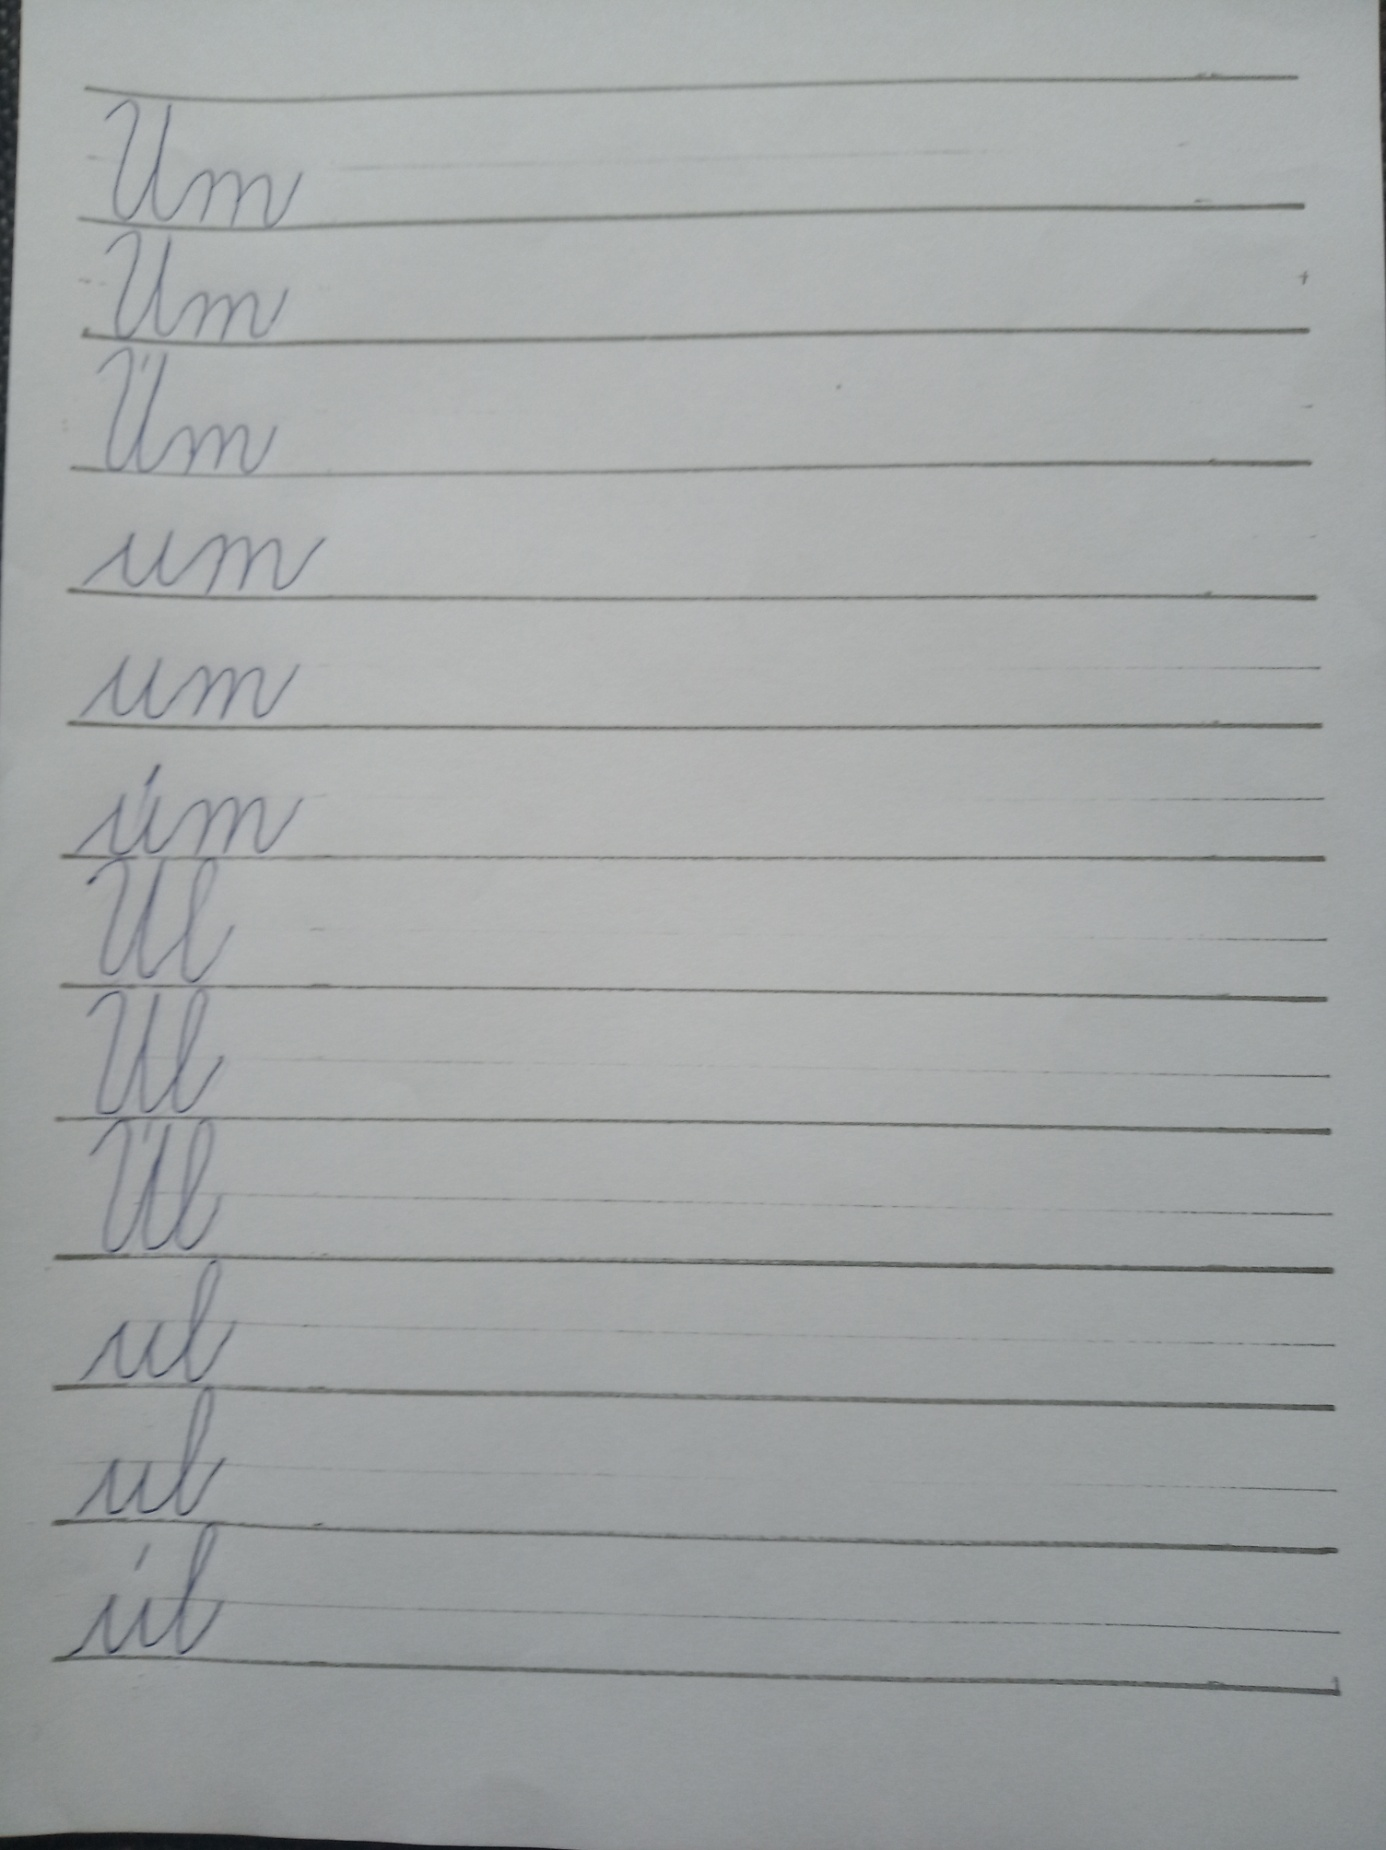 Um
Um
Úm
um
um
úm
Ul
Ul
Úl
ul
ul
úl